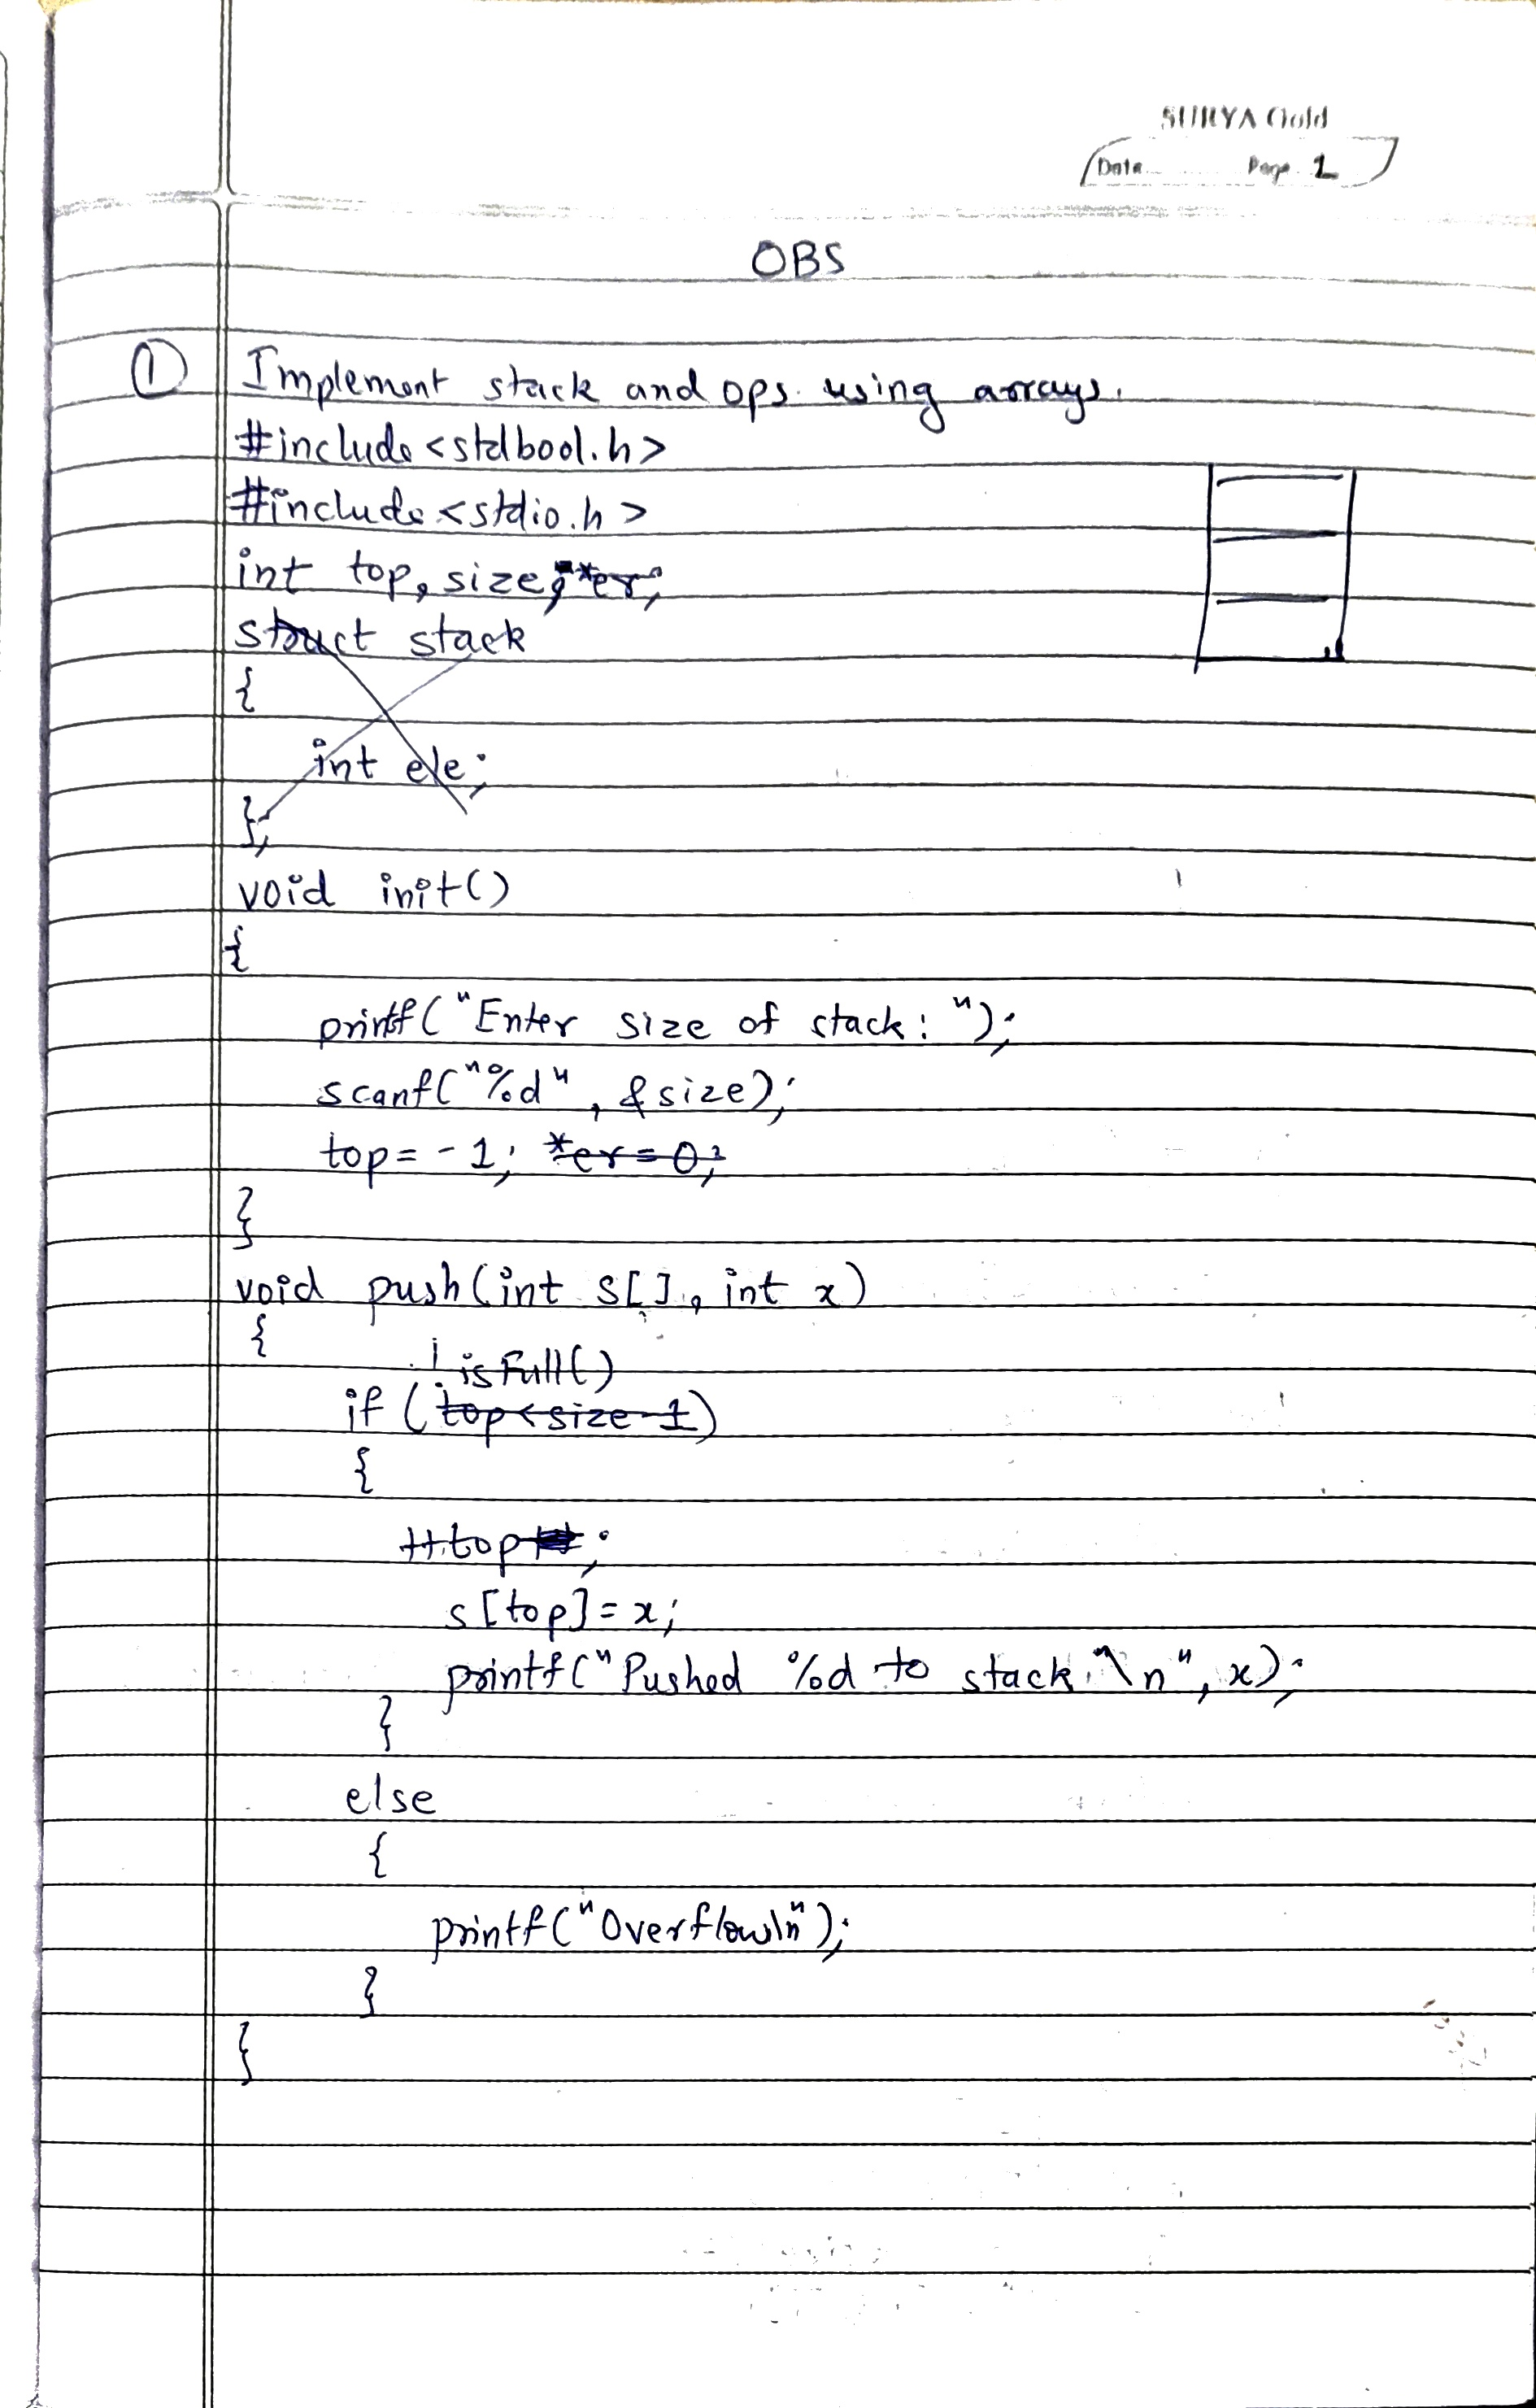 SURYA Gold
Date Page 1
OBS
① Implement stack and ops. using arrays.
#include<stdbool.h>
#include<stdio.h>
int top, size; *er;
struct stack
{
int ele;
};
void init()
{
printf("Enter size of stack: ");
scanf("%d", &size);
top=-1; *er=0;
}
void push(int s[], int x)
{
!isFull()
if (top<size-1)
{
++top;
s[top]=x;
printf("Pushed %d to stack.\n", x);
}
else
{
printf("Overflow\n");
}
}